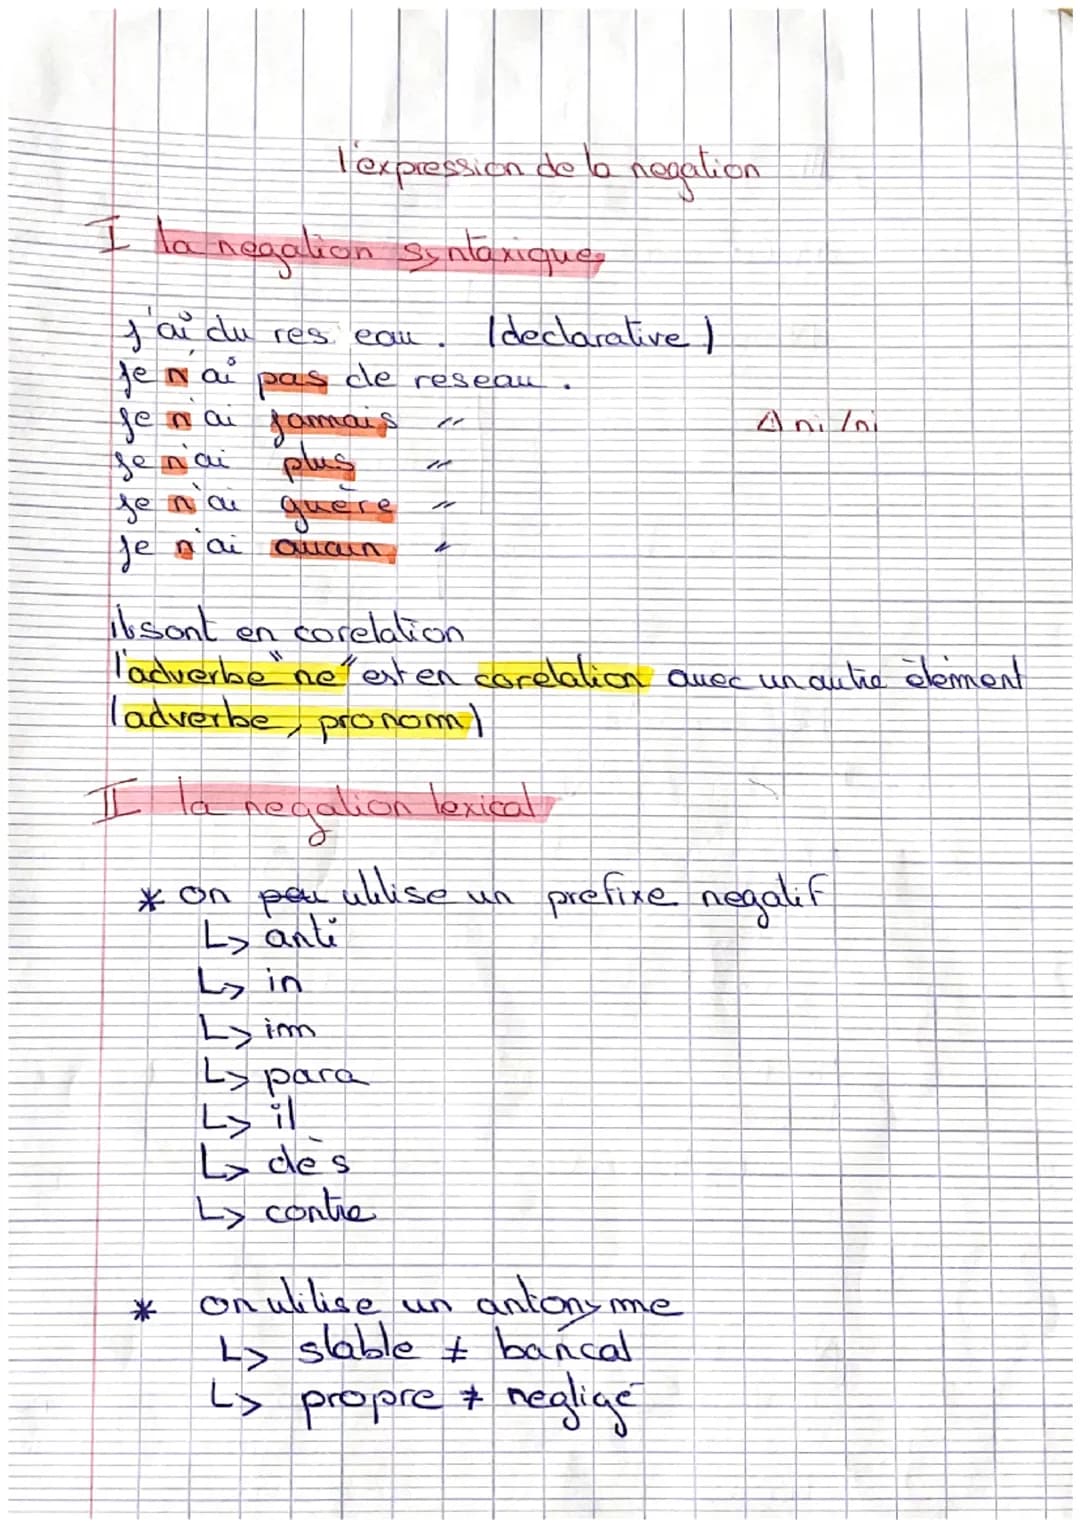 l'expression de la negation
I la negation syntaxique
J'ai du reseau. (declarative)
Je n'ai pas de reseau.
Je n'ai jamais "
△ ni /ni
Je n'ai plus "
Je n'ai guère "
Je n'ai aucun "
ils sont en corelation
l'adverbe "ne" est en corelation avec un autre élement
(adverbe, pronom)
II la negation lexical
* on peu utilise un prefixe negatif
↳ anti
↳ in
↳ im
↳ para
↳ il
↳ dès
↳ contre
* on utilise un antonyme
↳ stable ≠ bancal
↳ propre ≠ negligé